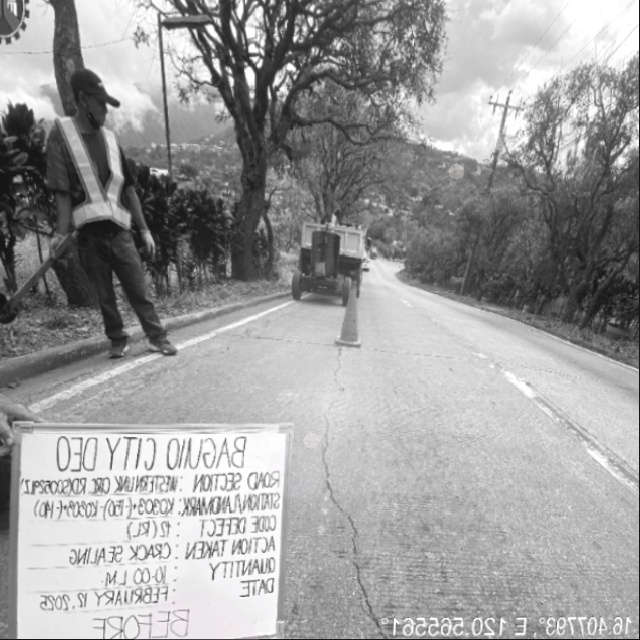 BAGUIO CITY DEO
ROAD SECTION : WESTERN LINK CIRC RD(S00529LZ)
STATION/LANDMARK: K0303+(-150)-K0303+(-140)
CODE DEFECT : 12 (RL)
ACTION TAKEN : CRACK SEALING
QUANTITY : 10.00 L.M
DATE : FEBRUARY 12, 2025
BEFORE
16.407793° E 120.565561°